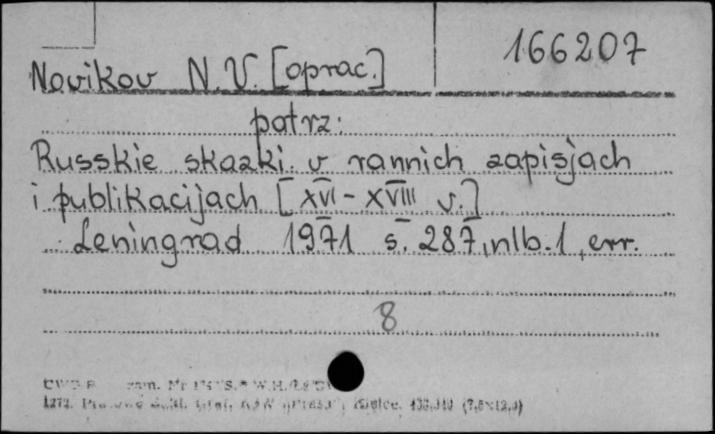 166207
Novikov N.V. [oprac.]
patrz:
Russkie skazki v rannich zapisjach
i publikacijach [XVI-XVIII v.]
Leningrad 1971 s. 287, nlb. 1, err.
8
zam.
Kielce.